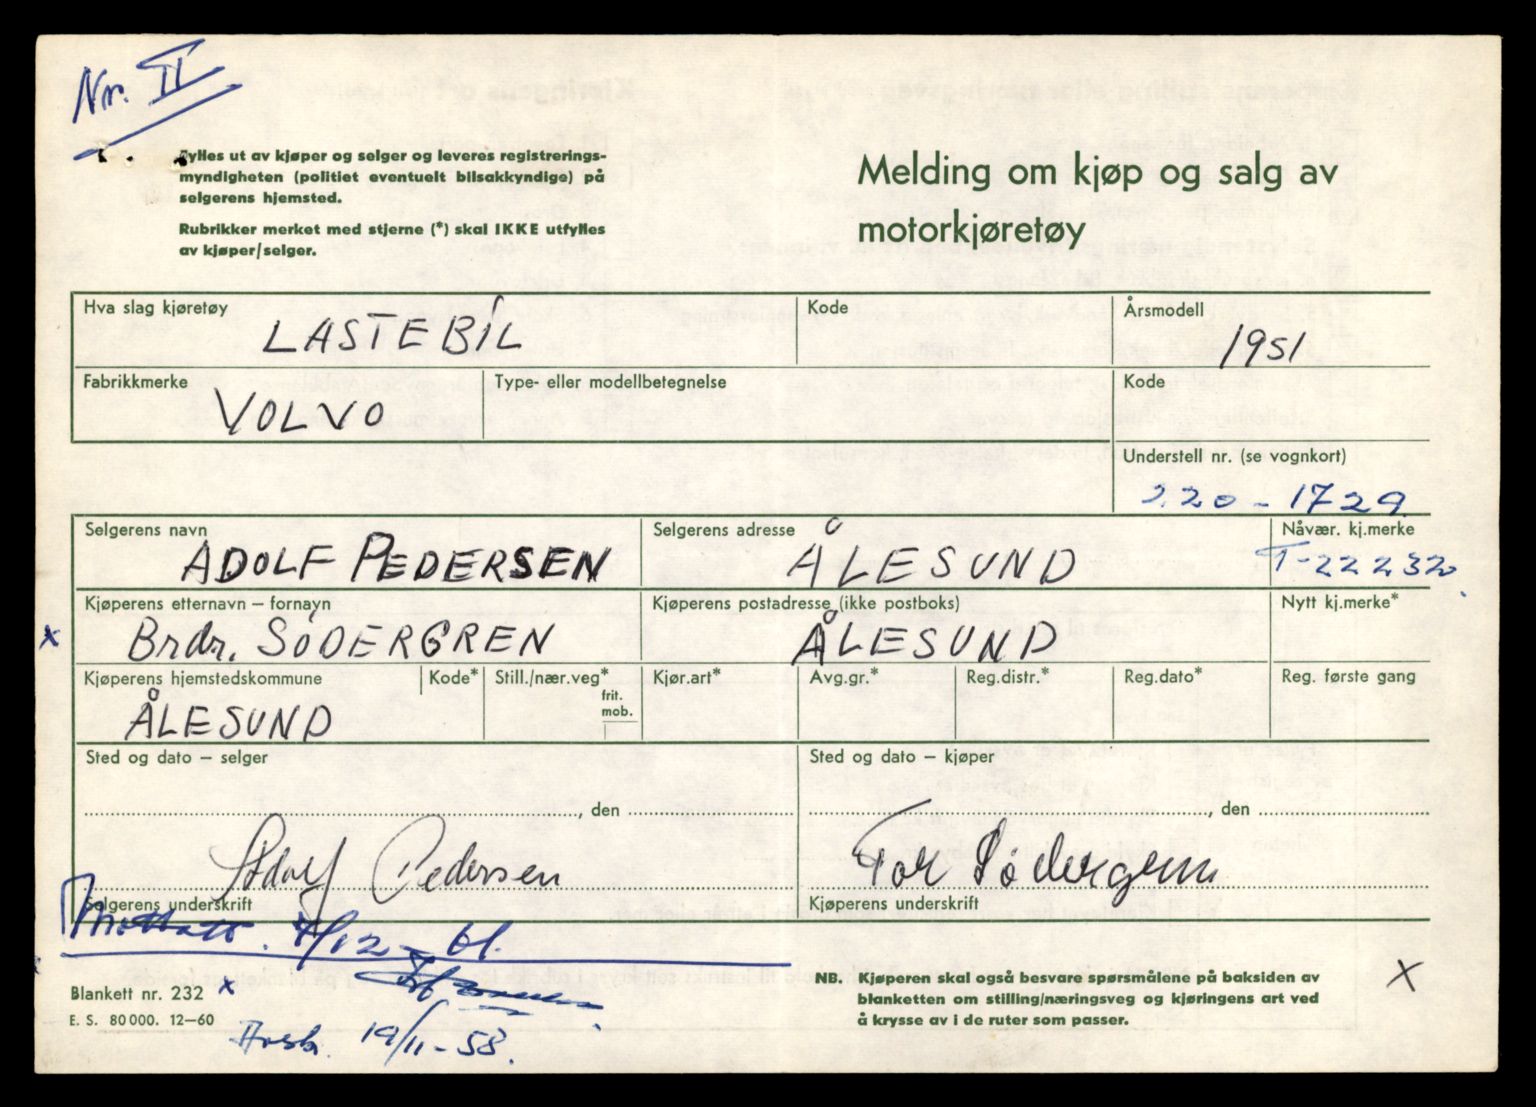 Nr. II
Fylles ut av kjøper og selger og leveres registrerings-
myndigheten (politiet eventuelt bilsakkyndige) på
selgerens hjemsted.
Rubrikker merket med stjerne (*) skal IKKE utfylles
av kjøper/selger.
Melding om kjøp og salg av
motorkjøretøy
Hva slag kjøretøy
LASTEBIL
Kode
Årsmodell
1951
Fabrikkmerke
VOLVO
Type- eller modellbetegnelse
Kode
Understell nr. (se vognkort)
220-1729
Selgerens navn
ADOLF PEDERSEN
Selgerens adresse
ÅLESUND
Nåvær. kj.merke
T-22232
Kjøperens etternavn – fornavn
x Brdr. SÖDERGREN
Kjøperens postadresse (ikke postboks)
ÅLESUND
Nytt kj.merke*
Kjøperens hjemstedskommune
ÅLESUND
Kode*
Still./nær.veg*
frit.
mob.
Kjør.art*
Avg.gr.*
Reg.distr.*
Reg.dato*
Reg. første gang
Sted og dato – selger
, den
Adolf Pedersen
Selgerens underskrift
Sted og dato – kjøper
, den
Tor Södergren
Kjøperens underskrift
Mottatt. 4/12-61.
Blankett nr. 232 x
E. S. 80000. 12–60
19/11-58.
NB. Kjøperen skal også besvare spørsmålene på baksiden av
blanketten om stilling/næringsveg og kjøringens art ved
å krysse av i de ruter som passer.
X